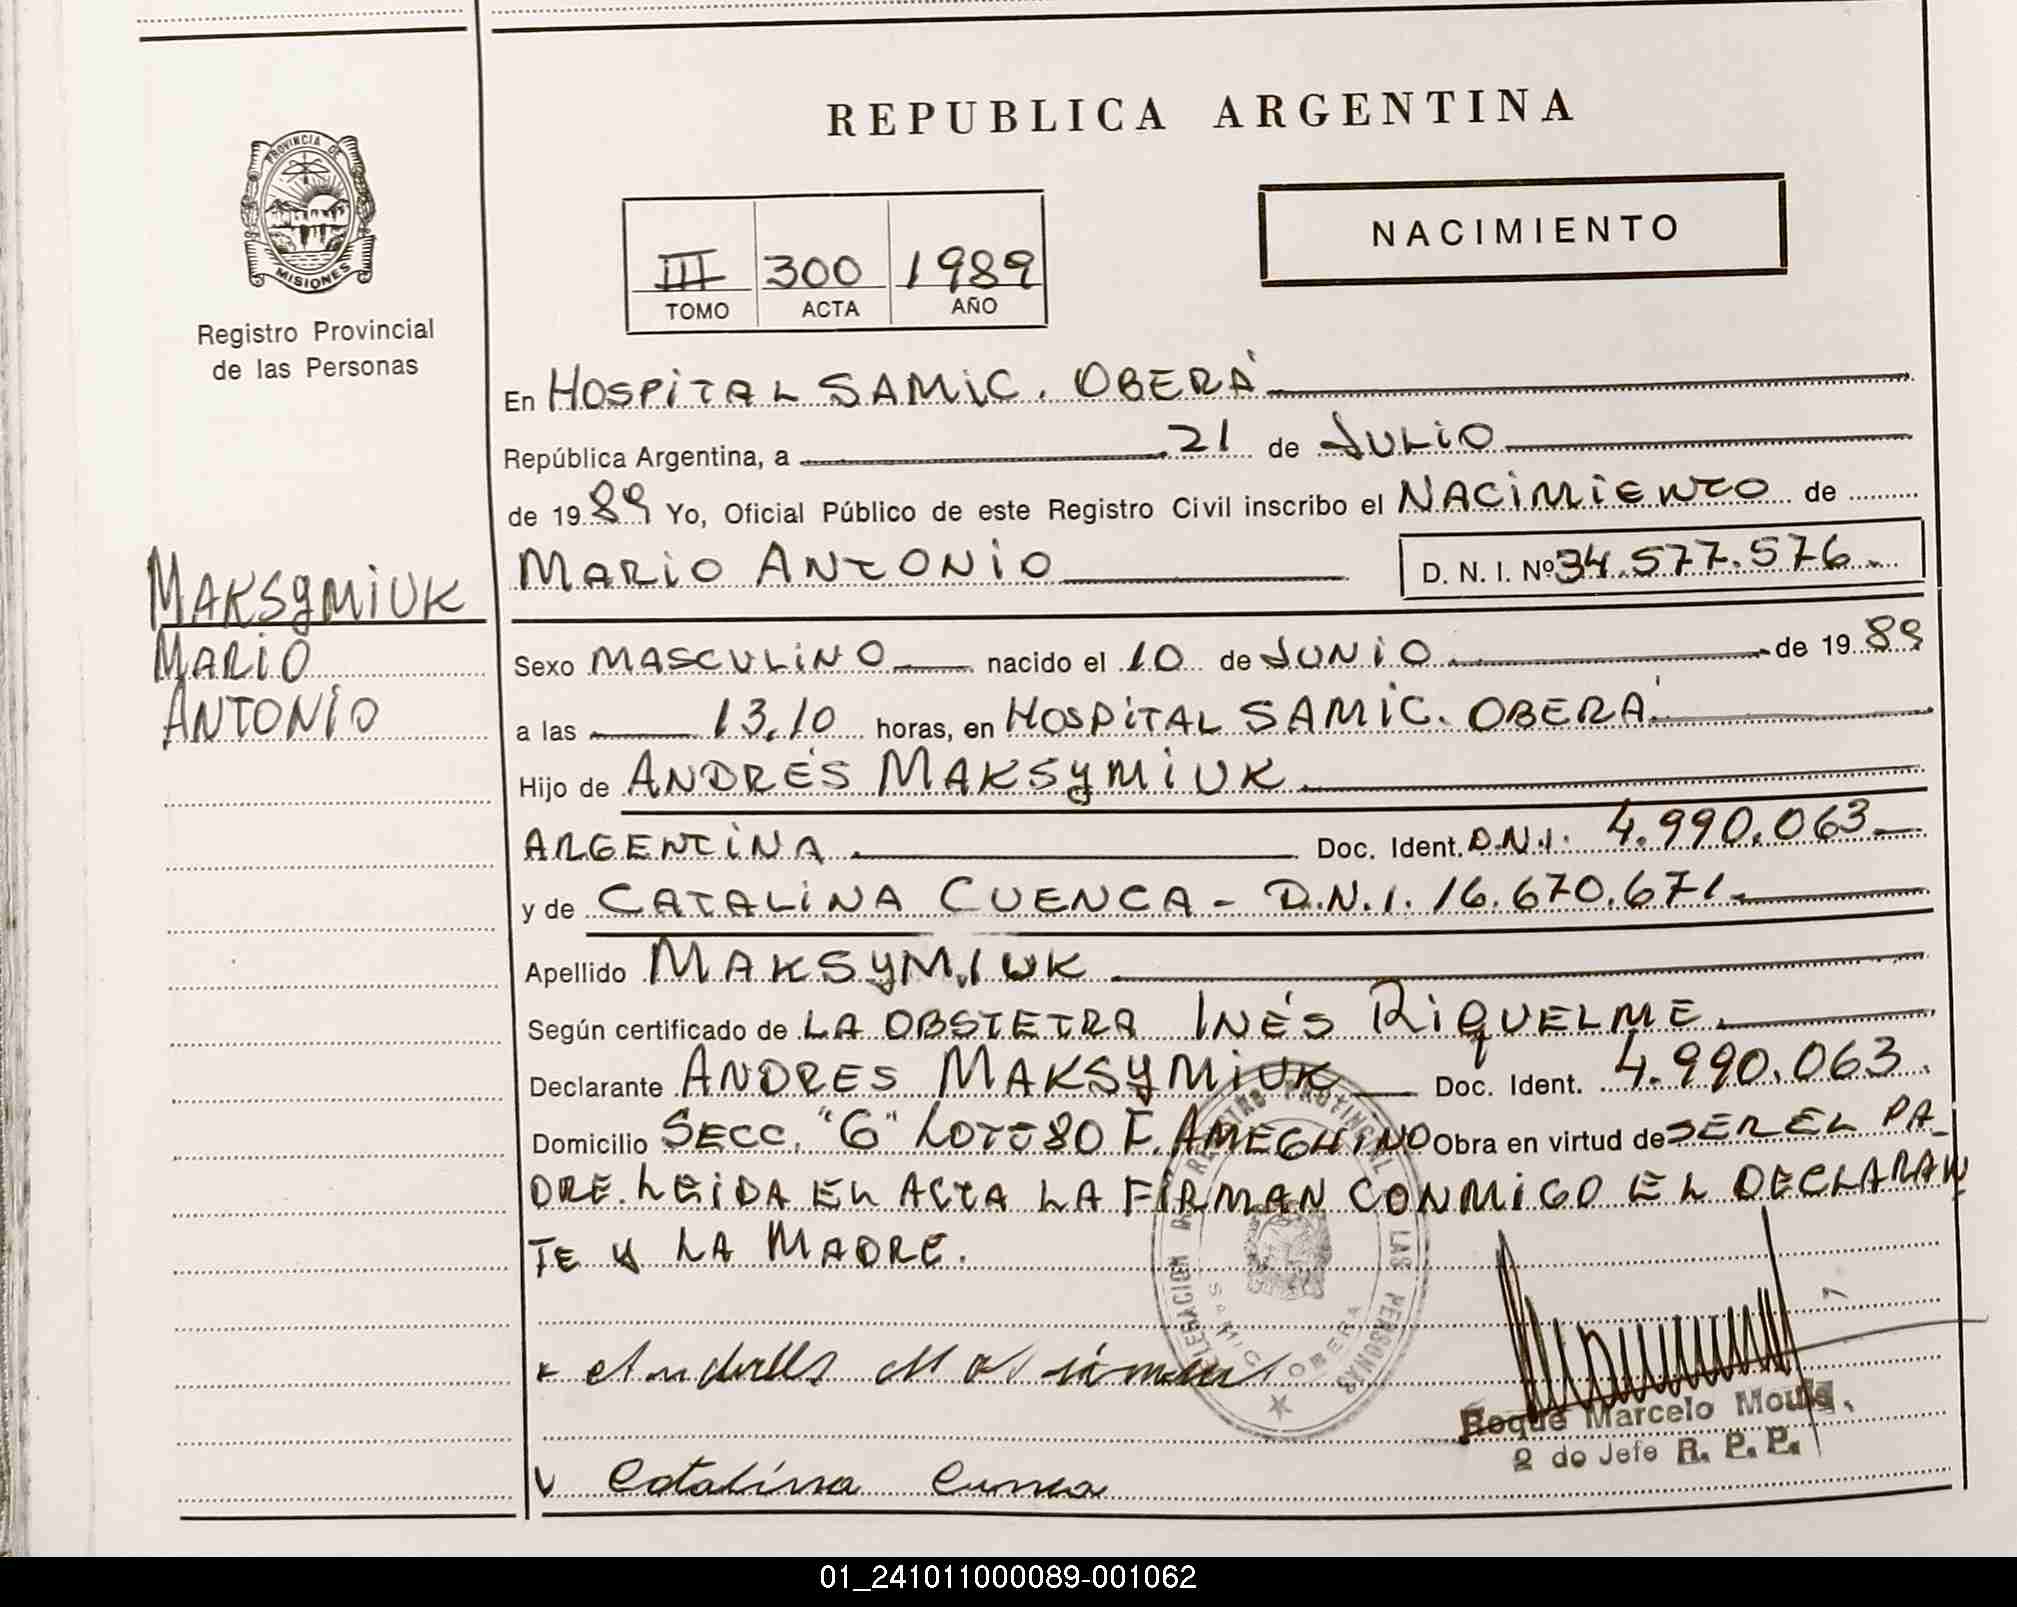 REPUBLICA ARGENTINA
PROVINCIA DE
MISIONES
NACIMIENTO
III 300 1989
TOMO ACTA AÑO
Registro Provincial
de las Personas
En HOSPITAL SAMIC. OBERÁ
República Argentina, a 21 de JULIO
de 1989 Yo, Oficial Público de este Registro Civil inscribo el NACIMIENTO de
MARIO ANTONIO D. N. I. Nº 34.577.576.
MAKSYMIUK
MARIO
ANTONIO
Sexo MASCULINO nacido el 10 de JUNIO de 1989
a las 13,10 horas, en HOSPITAL SAMIC. OBERÁ
Hijo de ANDRÉS MAKSYMIUK
ARGENTINA Doc. Ident. D.N.I. 4.990.063
y de CATALINA CUENCA - D.N.I. 16.670.671
Apellido MAKSYMIUK
Según certificado de LA OBSTETRA INÉS RIQUELME
Declarante ANDRES MAKSYMIUK Doc. Ident. 4.990.063.
Domicilio SECC. "G" LOTE 80 F. AMEGHINO Obra en virtud de SER EL PA-
DRE. LEIDA EL ACTA LA FIRMAN CONMIGO EL DECLARAN
TE Y LA MADRE.
DELEGACION REGISTRO PROVINCIAL LAS PERSONAS
SAMIC OBERA
Roque Marcelo
2 do Jefe R. P. P.
Catalina Cuenca
01_241011000089-001062